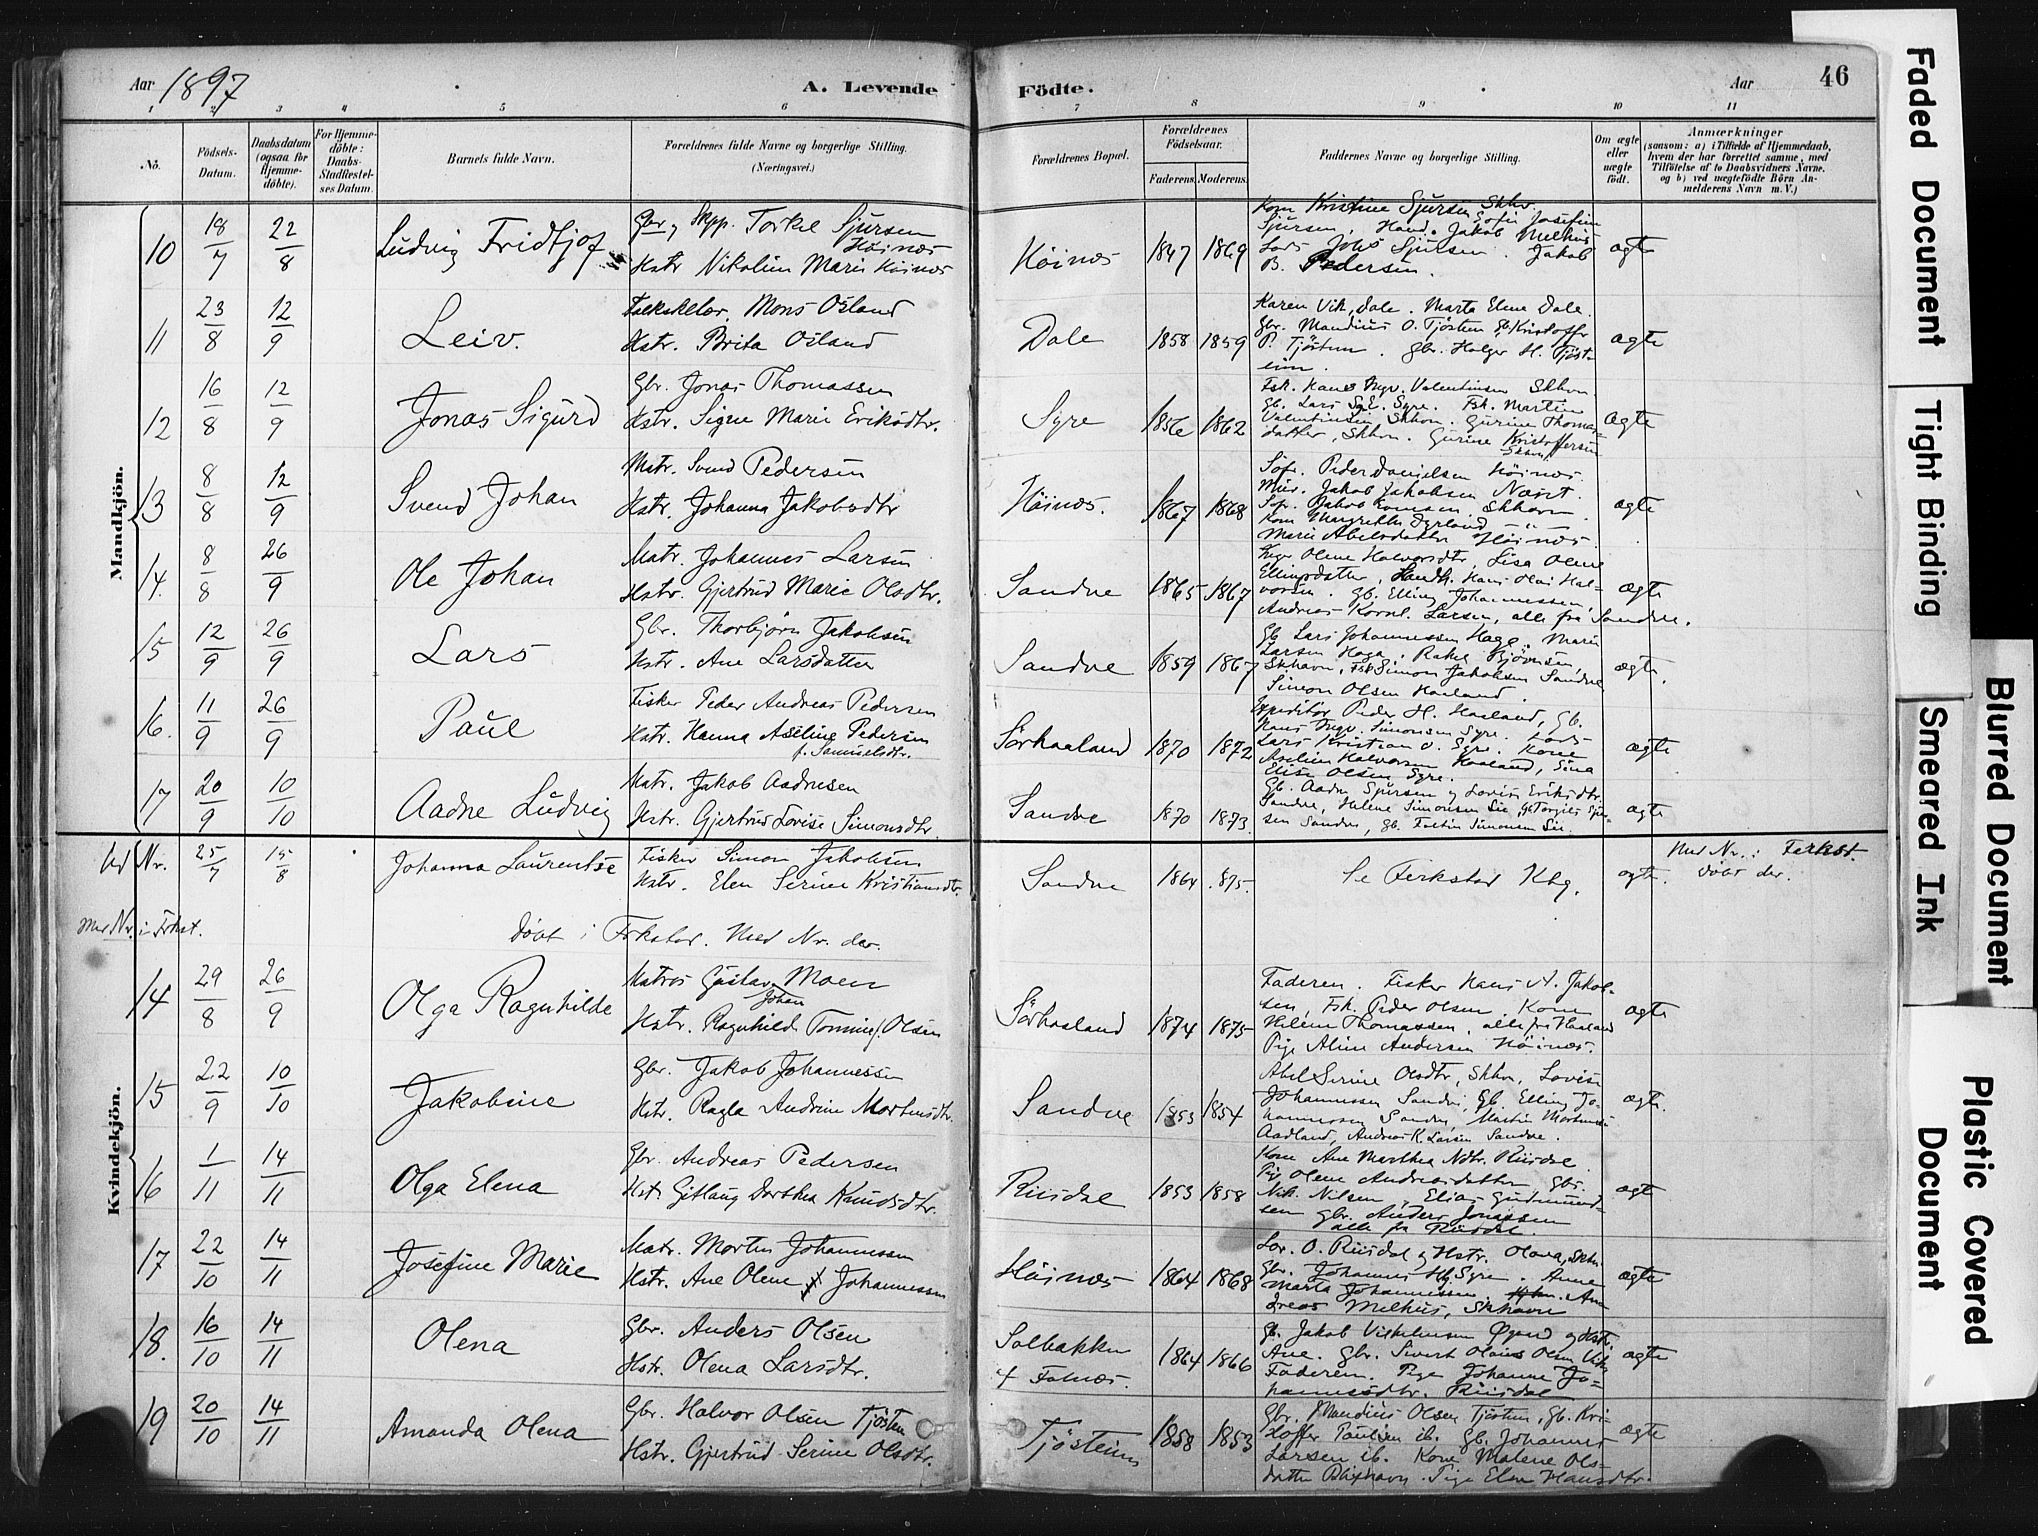 Aar 1897
A. Levende
Födte.
Aar
46
1 2 3 4 5 6 7 8 9 10 11
No.
Födsels-
Datum.
Daabsdatum
(ogsaa for
Hjemme-
döbte).
For Hjemme-
döbte:
Daabs-
Stadfæstel-
ses Datum.
Barnets fulde Navn.
Forældrenes fulde Navne og borgerlige Stilling.
(Næringsvei.)
Forældrenes Bopæl.
Forældrenes
Födselsaar.
Faderens. Moderens.
Faddernes Navne og borgerlige Stilling.
Om ægte
eller
uægte
födt.
Anmærkninger
(saasom: a) i Tilfælde af Hjemmedaab,
hvem der har forrettet samme, med
Tilföielse af to Daabsvidners Navne.
og b) ved uægtefödte Börn An-
melderens Navn m. V.)
Mandkjön.
10 18/7 22/8 Ludvig Fridtjof
Gbr. og Skpp. Torkel Sjursen
Höinæs
Hstr Nikoline Marie Höinæs
Höinæs 1847 1869
Kom Kristine Sjursen Skhv.
Sjursen, Hand. Jakob Melhus
Lods Johs Sjursen. Jakob
B. Pedersen.
ægte
11 23/8 12/9 Leiv.
Mons Osland
Hstr. Brita Osland
Dale 1858 1859
Karen Vik, Dale. Marta Elene Dale.
Gbr. Mandius O. Tjöstem Gb. Kristoffer
P. Tjöstem. Gbr. Holger H. Tjöst-
eim.
ægte
12 16/8 12/9 Jonas Sigurd
Gbr. Jonas Thomassen
Hstr. Signe Marie Eriksdtr.
Syre 1856 1862
Fsk. Hans Ingv. Valentinsen Skhvn.
Gb. Lars Syre. Fsk. Martin
Valentinsen Skhvn. Gurine Thomas-
datter, Skhvn. Gurine Kristoffersen
Skhvn.
ægte
13 8/8 12/9 Svend Johan
Matr. Svend Pedersen
Hstr. Johanna Jakobsdtr
Höinæs. 1867 1868
Söfr. Peder Danielsen Höinæs.
Mur. Jakob Jakobsen Næst.
Söfr. Jakob Skhavn.
Kom Margrethe
Marie Abelsdatter Höinæs.
ægte
14. 8/8 26/9 Ole Johan
Matr. Johannes Larsen
Hstr. Gjertrud Marie Olsdtr.
Sandve 1865 1867
Olene Halvorsdtr, Lisa Olene
Ellingsdatter, Handh. Hans Olai Hal-
vorsen. Gb. Elling Johannessen,
Andreas Kornel. Larsen, alle fra Sandve.
ægte
15 12/9 26/9 Lars
Gbr. Thorbjörn Jakobsen
Hstr. Ane Larsdatter
Sandve 1859 1867
Gb Lars Johannessen Haga. Marie
Larsen Haga. Rakel Bjövnsen,
Skhavn, Fsk Simon Jakobsen Sandve
Simeon Olsen Haaland.
ægte.
16. 11/9 26/9 Paul
Fisker Peder Andreas Pedersen
Hstr. Hanna Aseline Pedersen
f. Samuelsdtr.
Sörhaaland 1870 1872
Expeditör Peder H. Haaland, Gb.
Hans Ingv. Simonsen Syre. Lods
Lars Kristian O. Syre. Kone
Aseline Halvorsen Haaland, Sina
Elise Olsen Syre.
ægte
17 20/9 10/10 Aadne Ludvig
Matr. Jakob Aadnesen
Hstr. Gjertrud Lovise Simonsdtr.
Sandve 1870 1873.
Gb. Aadne Sjursen og Lovise Eriksdtr.
Sandve, Helene Simonsen Sie, Gb Torgils Sjur-
sen Sandve, Gb. Fastin Simonsen Sie.
ægte
Ud Nr. 25/7 15/8 Johanna Laurentse
Fisker Simon Jakobsen
Hstr. Elen Serine Kristiansdtr.
Sandve 1864 1875.
Se Ferkstad Kbg.
ægte.
Med Nr. i Ferkst.
döbt der.
Med Nr. i Frkst.
Döbt i Frkstad. Med Nr. der.
Kvindekjön.
14 29/8 26/9 Olga Ragnhilde
Matros Gustav Moen
Johan
Hstr. Ragnhild Tomine f. Olsen
Sörhaaland 1874 1875
Faderen. Fisker Hans A. Jakob-
sen, Fsk. Peder Olsen. Kone
Helene Thomassen, alle fra Haaland
Pige Aline Andersen Höinæs.
ægte
15 22/9 10/10 Jakobine
Gbr. Jakob Johannessen
Hstr. Ragla Andrine Mortensdtr.
Sandve 1853 1854
Abel Serine Olsdtr, Skhvn, Lovise
Johannessen Sandve, Gb Elling Jo-
hannessen Sandve, Martin Mortensen
Aadland, Andreas K. Larsen Sandve.
ægte.
16 1/11 14/11 Olga Elena
Gbr. Andreas Pedersen
Hstr Gitlaug Dorthea Knudsdtr.
Riisdal 1853 1858
Kone Ane Marthea Ndtr. Riisdal
Pige Olene Andreasdatter, Gbr.
Nik. Nilsen, Elias Gudmund-
sen Gbr. Anders Jonassen
alle fra Riisdal.
ægte
17 22/10 14/11 Josefine Marie
Matr. Morten Johannessen
Hstr. Ane Olene Johannessen
Höinæs 1864 1868
Lor. O. Riisdal og Hstr. Olava, Skhv.
Gbr. Johannes Hg. Syre. Anne
Marta Johannessen. An-
dreas Melhus, Skhavn
ægte
18. 16/10 14/11 Olena
Gbr. Anders Olsen
Hstr. Olena Larsdtr.
Solbakken
+ Falnæs. 1864 1866
Gb. Jakob Vilhelmsen og Hstr.
Ane. Gbr. Sivert Olaus Olsen Vik
Faderen. Pige Johanne Jo-
hannesdtr. Riisdal
ægte
19 20/10 14/11 Amanda Olena
Gbr. Halvor Olsen Tjöstem
Hstr. Gjertrud Serine Olsdtr.
Tjösteim 1858 1853
Gbr. Mandius Olsen Tjöstem, Gb. Kri-
stoffer Paulsen ib. Gb. Johannes
Larsen ib. Kone Malene Ols-
datter Skhavn. Pige Elen Hansdtr.
ægte
Faded Document
Tight Binding
Smeared Ink
Blurred Document
Plastic Covered
Document